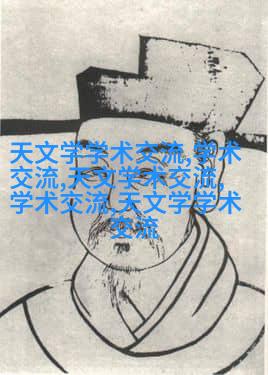 天文学学术交流,学术
交流,天文学术交流,
学术交流,天文学学术
交流